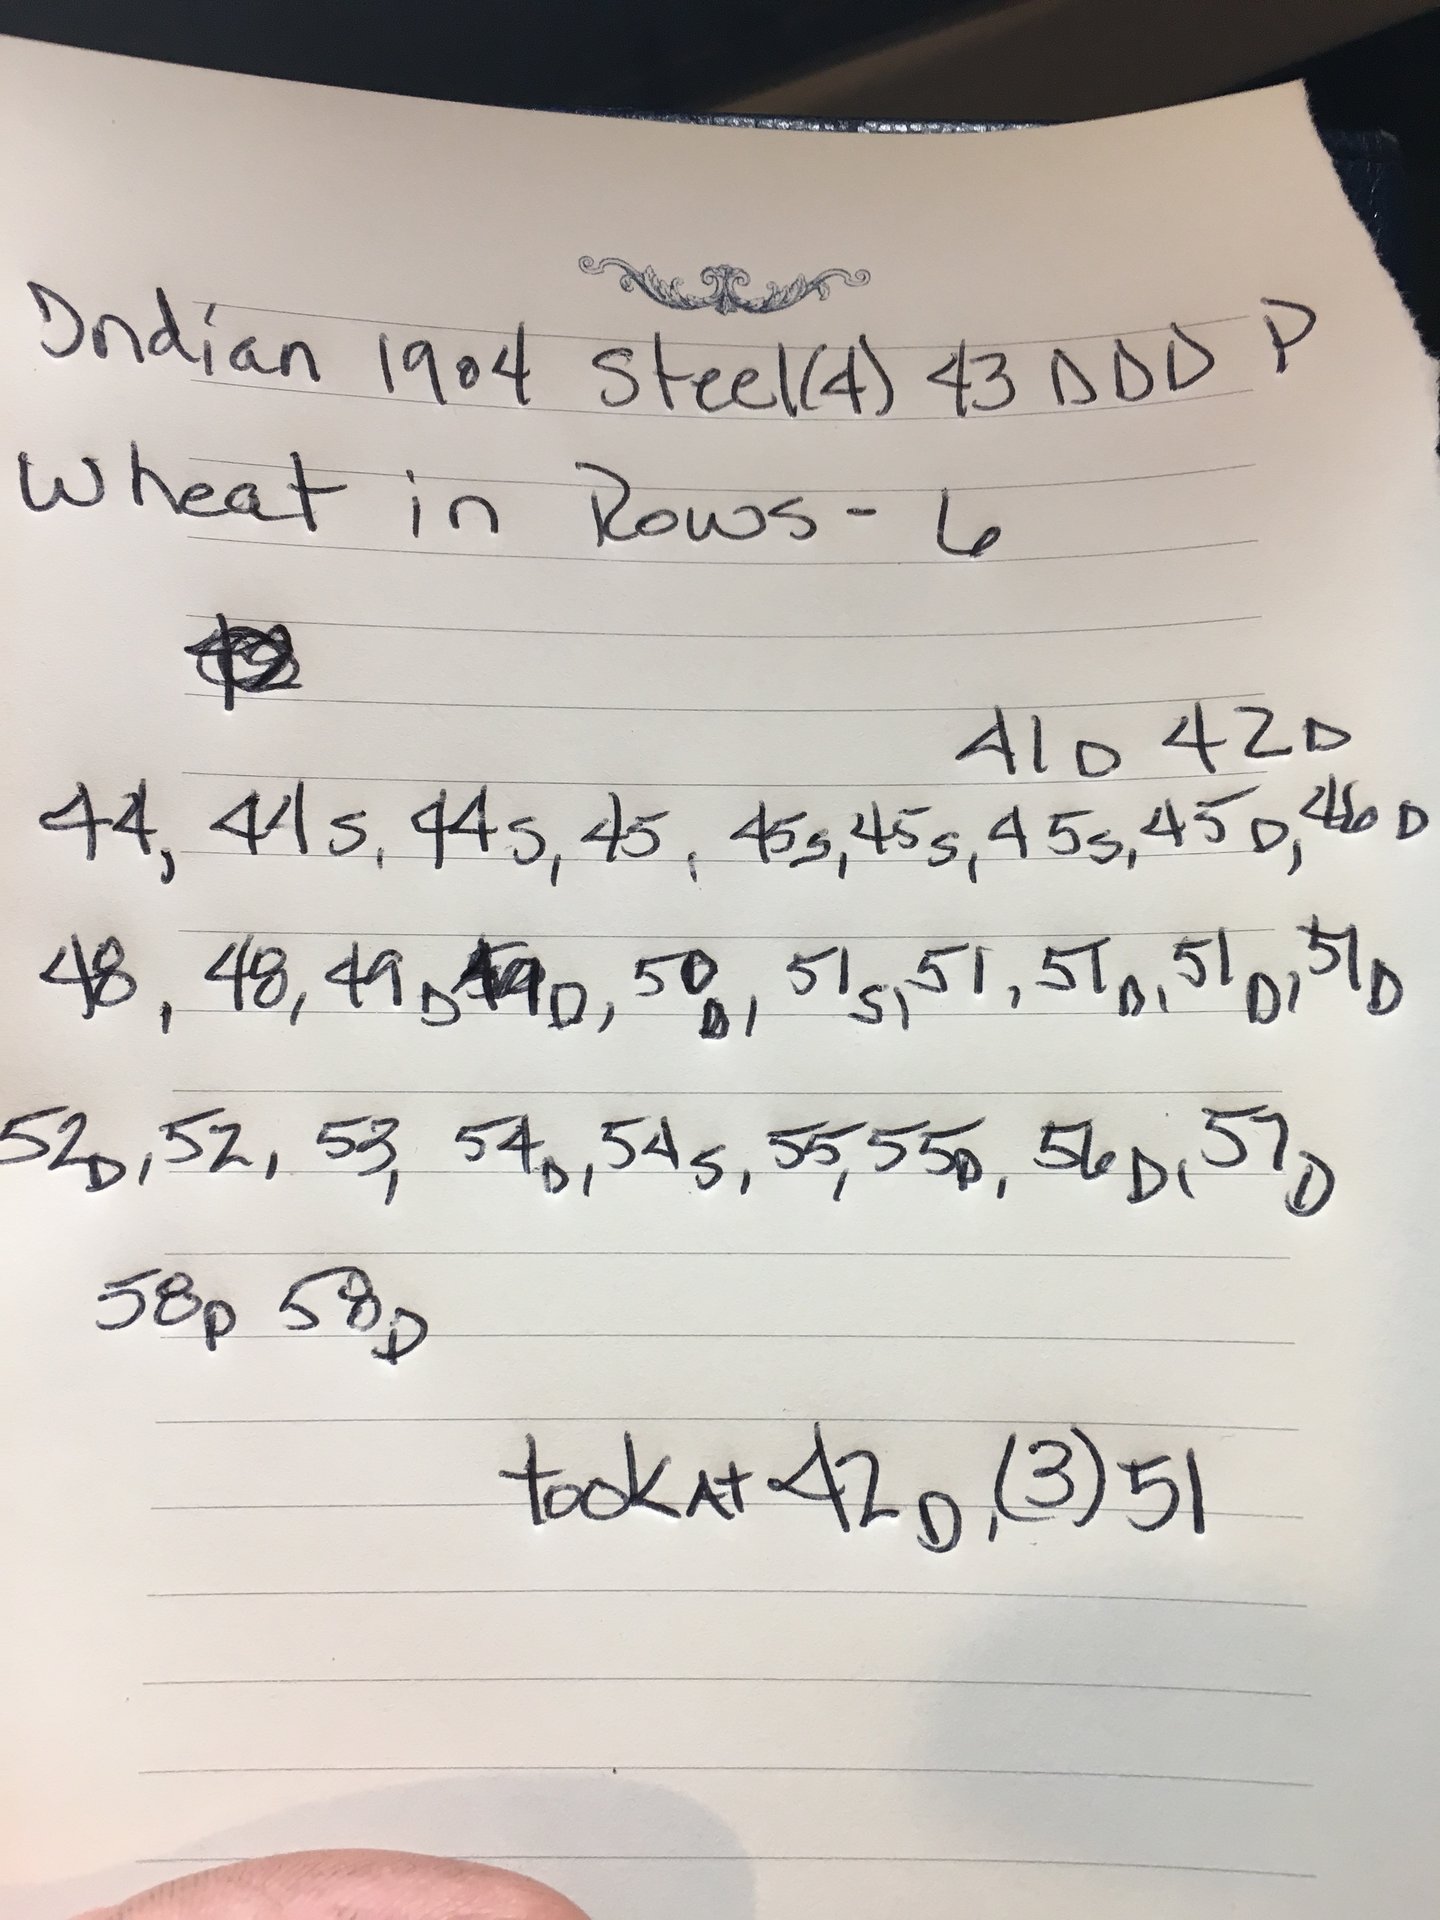 Indian 1904 Steel(4) 43 D D D P
Wheat in Rows - 6
41D 42D
44, 44S, 44S, 45, 45S, 45S, 45S, 45D, 46D
48, 48, 49D 49D, 50D, 51S, 51, 51D, 51D, 51D
52D, 52, 53, 54D, 54S, 55, 55D, 56D, 57D
58D 58D
took At 42D, (3) 51